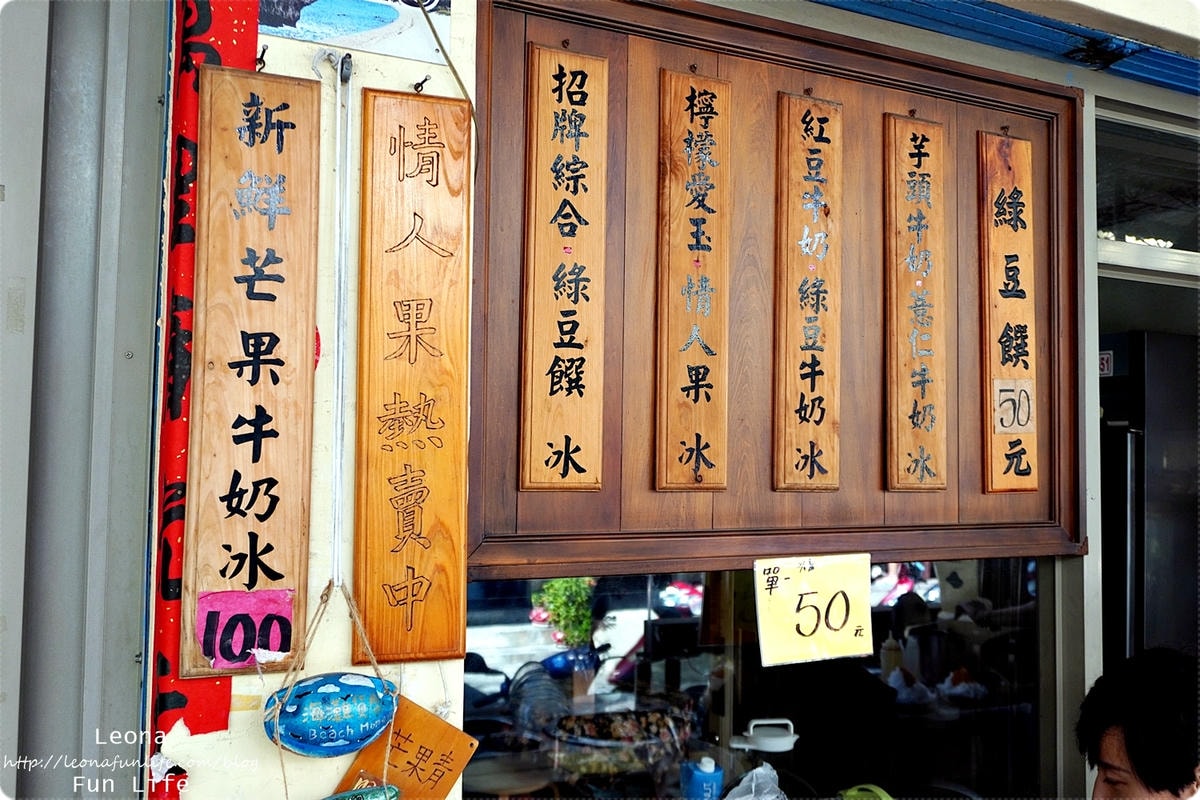 新鮮芒果牛奶冰
100
情人果熱賣中
招牌綜合·綠豆饌 冰
檸檬愛玉·情人果 冰
紅豆牛奶·綠豆牛奶 冰
芋頭牛奶·薏仁牛奶 冰
綠豆饌 50元
單一
50元
Beach
芒果青
51
Leona
http://leonafunlife.com/blog
Fun Life